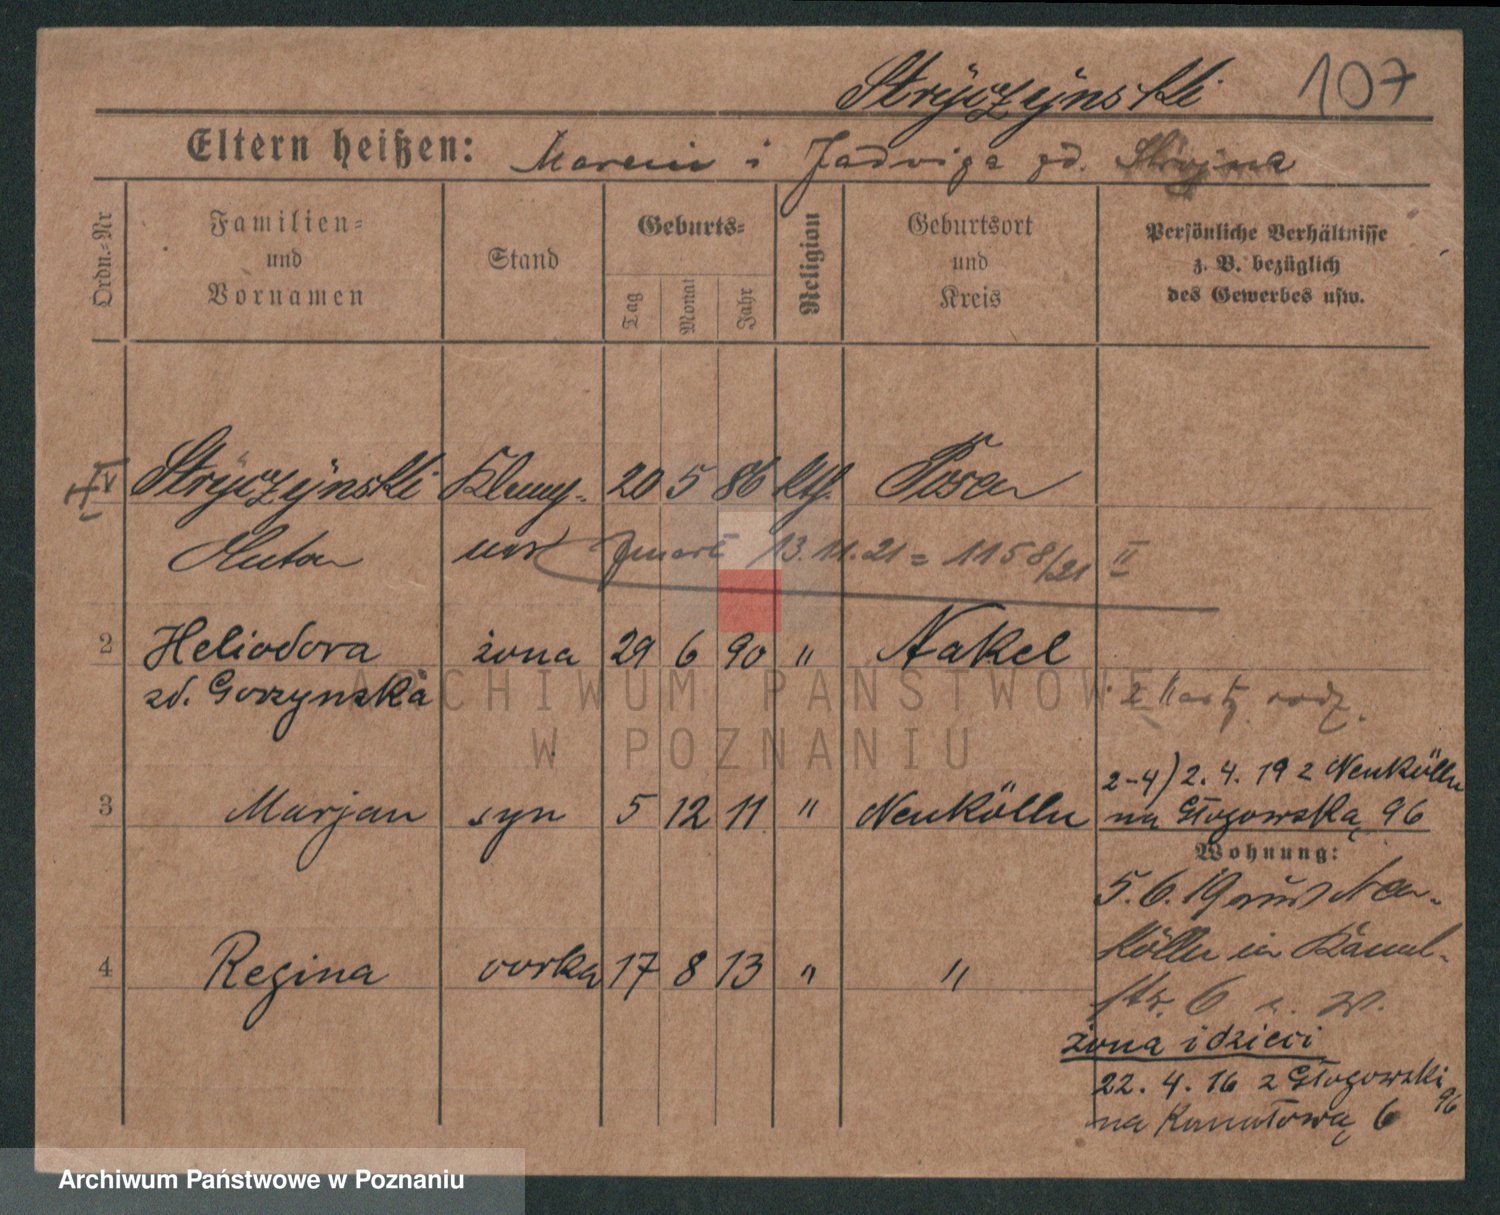 Stryczynski 107
Eltern heißen: Marcin i Jadwiga zd.
Ordn.-Nr
Familien- und Vornamen
Stand
Geburts-
Tag Monat Jahr
Religion
Geburtsort und Kreis
Persönliche Verhältnisse
z. B. bezüglich
des Gewerbes usw.
Stryczynski Klemp- 20 5 86 kth. Posen
Anton ner Zmarł 13.11.21 = 1158/21 II
2 Heliodora żona 29 6 90 " Nakel
zd. Gorzynska
ARCHIWUM PAŃSTWOWE
W POZNANIU
2-4) 2. 4. 19 z Neukölln
3 Marjan syn 5 12 11 " Neukölln na Głogowską 96
Wohnung:
5. 6. 19 aus Neu-
kölln
4 Regina córka 17 8 13 " "
str. 6
żona i dzieci
22. 4. 16 z Głogowski 96
na Kanałową 6
Archiwum Państwowe w Poznaniu